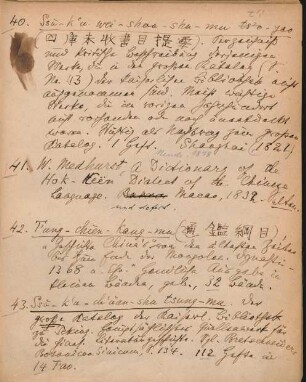 40. Ssŭ-k'u wei-shou-shu-mu t'i-yao
(四庫未收書目提要). Verzeichniss
und kritische Beschreibung derjenigen
Werke, die in den großen Katalog (s.
No. 43) der Kaiserlichen Bibliothek nicht
aufgenommen sind. Meist wichtige
Werke, die im vorigen Jahrhundert
noch
waren. Wichtig als Nachtrag zum großen
Katalog. 1 Heft. Shanghai 1821.
41. W. Medhurst, A Dictionary of the
Hok-Këèn Dialect of the Chinese
Language. Macao, 1832.
42. Tung-chien-kang-mu (通鑑綱目)
Geschichte China's von den ältesten Zeiten
bis zum Ende der Mongolen-Dynastie
1368 n. Chr. Ausgabe in
kleinen Bänden, geb., 32 Bände.
43. Ssŭ-k'u-ch'üan-shu tsung-mu. Der
große Katalog der Kaiserl. Bibliothek
zu Peking. Hauptsächlichstes Quellenwerk für
die chines. Literaturgeschichte. Vgl. Bretschneider,
Botanicon Sinicum, p. 134. 112 Hefte in
14 Tao.